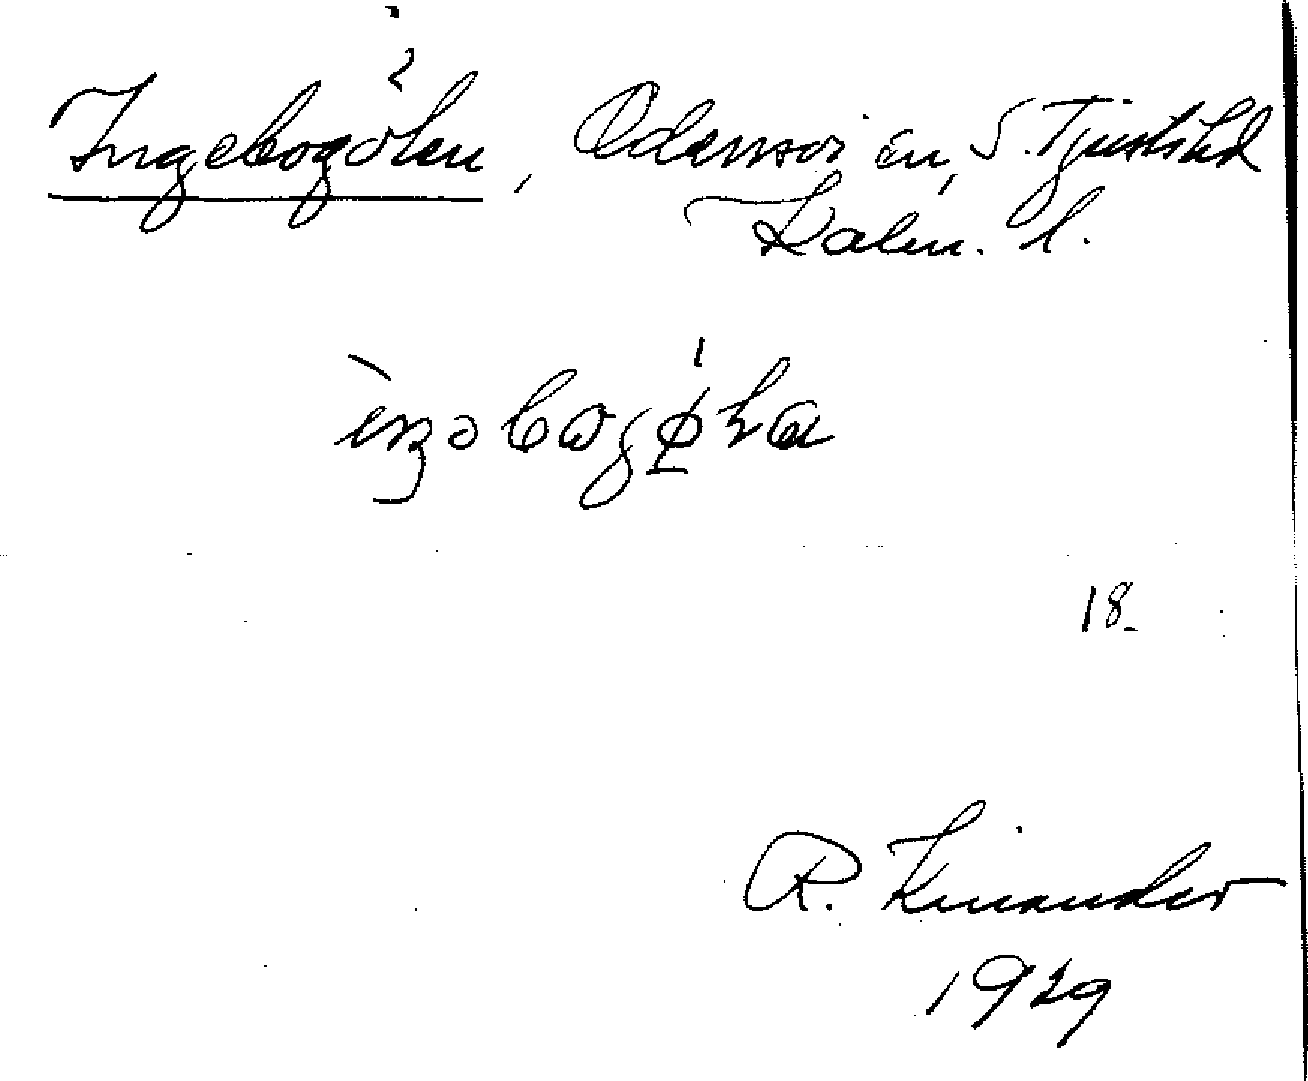 2
Ingebogölen, Odensvi sn, S. Tjusts hd
Kalm. l.
iŋəbogøla
18.
R. Kinander
1929